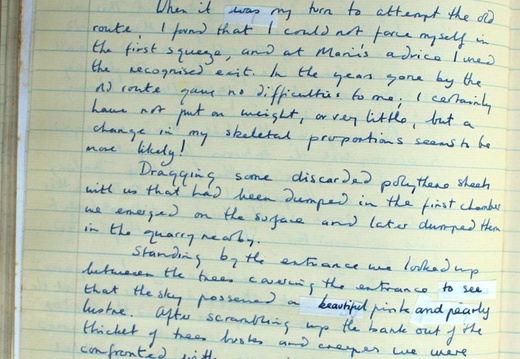 When it was my turn to attempt the old
route, I found that I could not force myself in
the first squeeze, and at Marie's advice I used
the recognised exit. In the years gone by the
old route gave no difficulties to me; I certainly
have not put on weight, or very little, but a
change in my skeletal proportions seems to be
more likely!
Dragging some discarded polythene sheets
with us that had been dumped in the first chamber
we emerged on the surface and later dumped them
in the quarry nearby.
Standing by the entrance we looked up
between the trees covering the entrance to see
that the sky possessed a beautiful pink and pearly
lustre. After scrambling up the bank out of the
thicket of trees bushes and creeper we were
confronted with